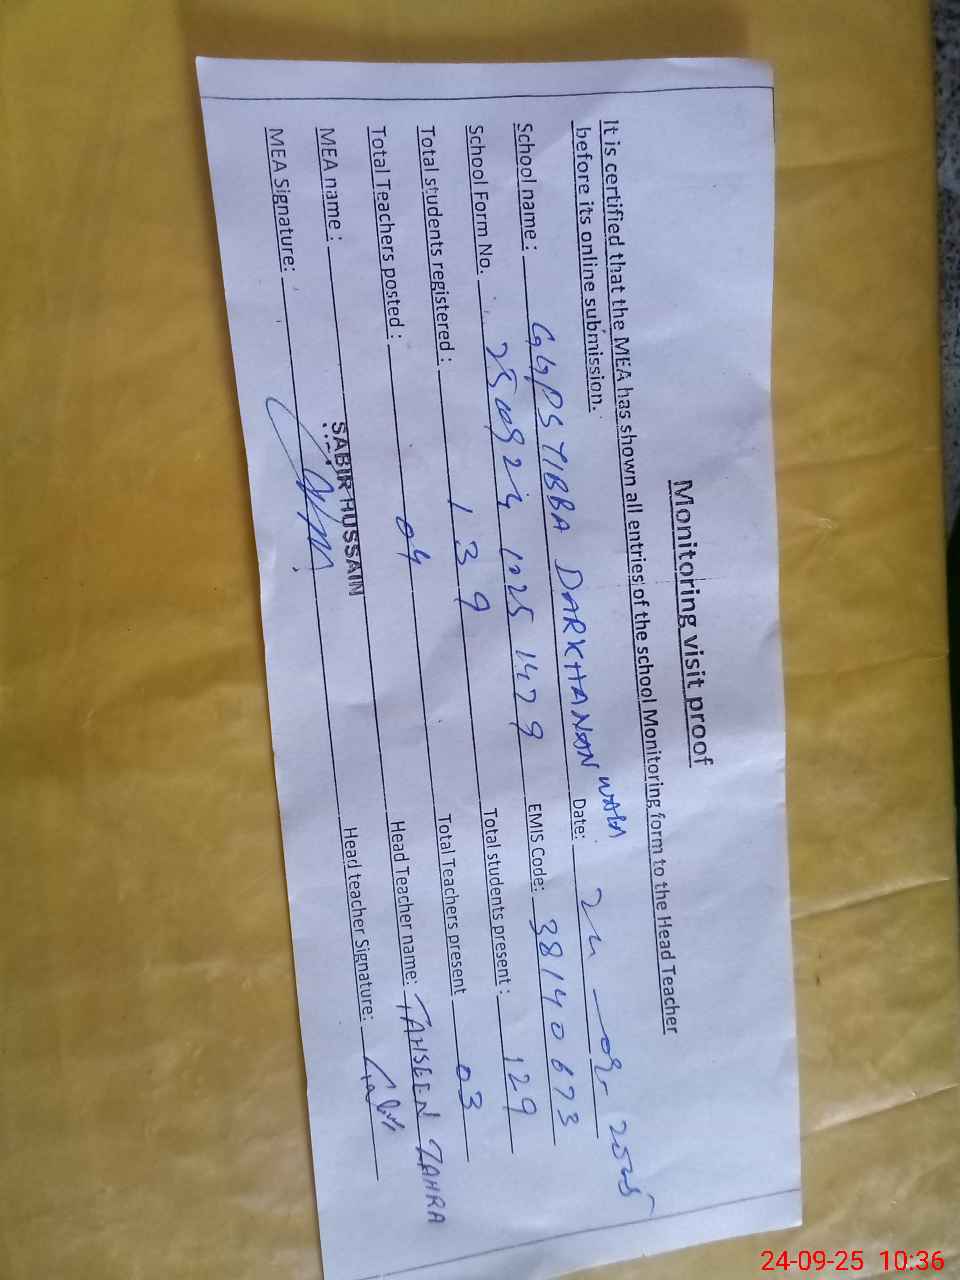 Monitoring visit proof
It is certified that the MEA has shown all entries of the school Monitoring form to the Head Teacher
before its online submission.
School name : GGPS TIBBA DARKHANAN WALA Date: 24-09-2025
School Form No. EMIS Code: 38140673
Total students registered : 139 Total students present : 129
Total Teachers posted : 04 Total Teachers present 03
MEA name : SABIR HUSSAIN Head Teacher name: TAHSEEN ZAHRA
MEA Signature: Head teacher Signature:
24-09-25 10:36